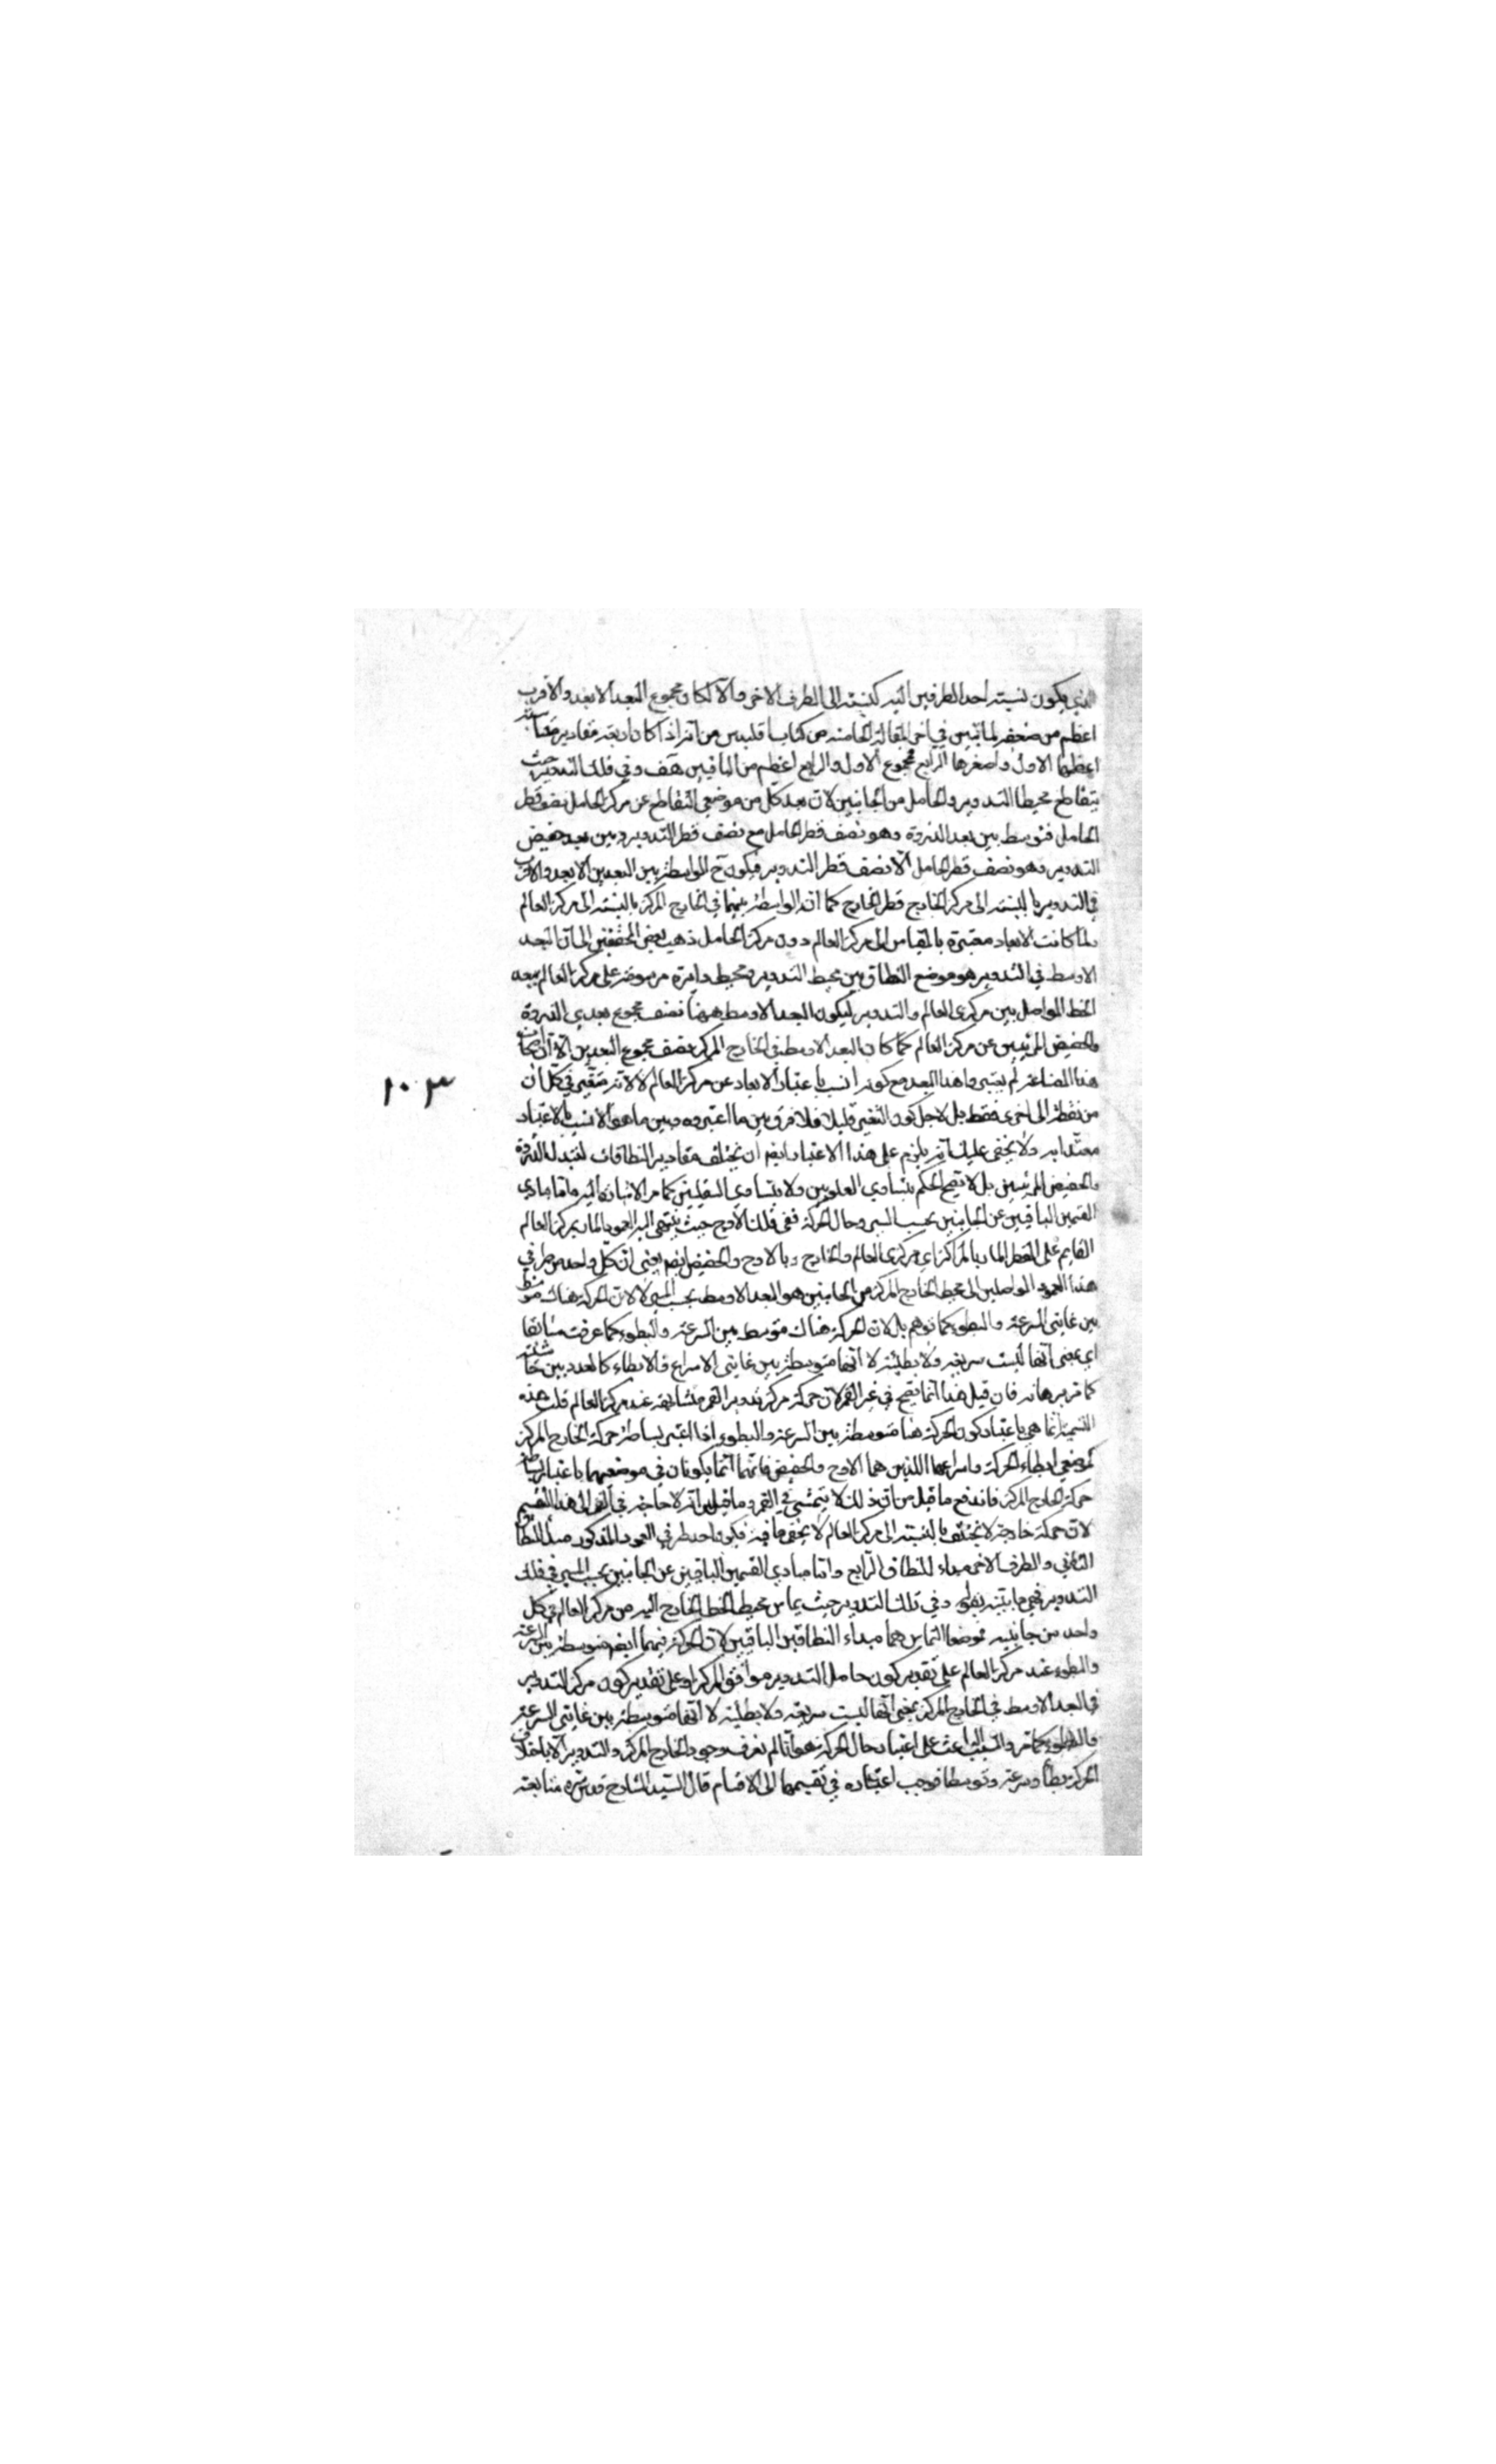 الذي يكون نسبته احد الطرفين اليه كنسبته الى الطرف الاخر والا لكان مجموع البعد الابعد والاقرب
اعظم من ضعفه لما تبين في اخر المقالة الخامسة من كتاب اقليدس من انه اذا كان اربعة مقادير متناسبة
اعظمها الاول واصغرها الرابع فمجموع الاول والرابع اعظم من الباقيين هف وفي فلك التدوير حيث
يتقاطع محيطا التدوير والحامل من الجانبين لان بعد كل من موضعي التقاطع عن مركز الحامل نصف قطر
الحامل فتوسط بين بعد الذروة وهو نصف قطر الحامل مع نصف قطر التدوير وبين بعد حضيض
التدوير وهو نصف قطر الحامل الا نصف قطر التدوير فيكون ح الواسطة بين البعدين الابعد والاقرب
في التدوير بالنسبة الى مركز الخارج قطر الخارج كما ان الواسطة بينهما في الخارج المركز بالنسبة الى مركز العالم
ولما كانت الابعاد معتبرة بالقياس الى مركز العالم دون مركز الحامل ذهب بعض المحققين الى ان البعد
الاوسط في التدوير هو موضع التطاق بين محيط التدوير ومحيط دايرة مرسومة على مركز العالم ببعد
الخط الواصل بين مركزي العالم والتدوير ليكون البعد الاوسط ههنا نصف مجموع بعدي الذروة
والحضيض المرئيين عن مركز العالم كما كان البعد الاوسط في الخارج المركز نصف مجموع البعدين الا ان اصحاب
هذا الصناعة لم يعتبروا هذا البعد مع كونه انسب باعتبار الابعاد عن مركز العالم لا لانه متغير في كل آن
من نقطة الى اخرى فقط بل لاجل كون التغير قليلا فلا فرق بين ما اعتبروه وبين ما هو الانسب بالاعتبار
معتدا به ولا يخفى عليك انه يلزم على هذا الاعتبار ايضا ان يختلف مقادير النطاقات لتبدل الذروة
والحضيض المرئيين بل لا يصح الحكم بتساوي العلويين ولا بتساوي السفليين كما مر الاشارة اليه واما مبادي
القسمين الباقيين عن الجانبين بحسب السير وحال الحركة ففي فلك الاوج حيث ينتهي اليه العمود المار بمركز العالم
القايم على القطر المار بالمراكز اي مركزي العالم والخارج وبالاوج والحضيض ايضا يعني ان كل واحد من طرفي
هذا العمود الواصلين الى محيط الخارج المركز من الجانبين هو البعد الاوسط بحسب السير لا لان الحركة هناك متوسطة
بين غايتي السرعة والبطوء كما توهم بل لان الحركة هناك متوسط بين السرعة والبطوء كما عرفت سابقا
اي بمعنى انها ليست سريعة ولا بطيئة لا انها متوسطة بين غايتي الاسراع والابطاء كالعدد بين حاشيته
كما مر برهانه فان قيل هذا انما يصح في غير القمر لان حركة مركز تدوير القمر متشابهة عند مركز العالم قلت هذه
التسمية انما هي باعتبار كون الحركة هنا متوسطة بين السرعة والبطوء اذا اعتبر بساطة حركة الخارج المركز
كموضعي ابطاء الحركة واسراعها اللذين هما الاوج والحضيض فانهما انما يكونان في موضعيهما باعتبار بساطة
حركة الخارج المركز فاندفع ما قيل من ان ذلك لا يتمشى في القمر وما قيل انه لا حاجة في القمر الى هذا التقسيم
لان حركة خارجة لا تختلف بالنسبة الى مركز العالم لا يخفى ما فيه فيكون احد طرفي العمود المذكور مبدأ للنطاق
الثاني والطرف الاخر مبداء للنطاق الرابع واما مبادي القسمين الباقيين عن الجانبين بحسب السير في فلك
التدوير فهي ما بينه بقوله وفي تلك التدوير حيث يماس محيطه الخط الخارج اليه من مركز العالم في كل
واحد من جانبيه فموضعا التماس هما مبداء النطاقين الباقيين لان الحركة فيهما ايضا متوسطة بين السرعة
والبطوء عند مركز العالم على تقدير كون حامل التدوير موافق المركز او على تقدير كون مركز التدوير
في البعد الاوسط في الخارج المركز بمعنى انها ليست سريعة ولا بطيئة لا انها متوسطة بين غايتي السرعة
والبطوء كما مر والسبب الباعث على اعتبار حال الحركة هو انا لم نعرف وجود الخارج المركز والتدوير الا باختلاف
الحركة بطأ وسرعة وتوسطا فوجب اعتباره في تقسيمها الى الاقسام قال السيد الشارح قدس سره متابعة
١٠٣